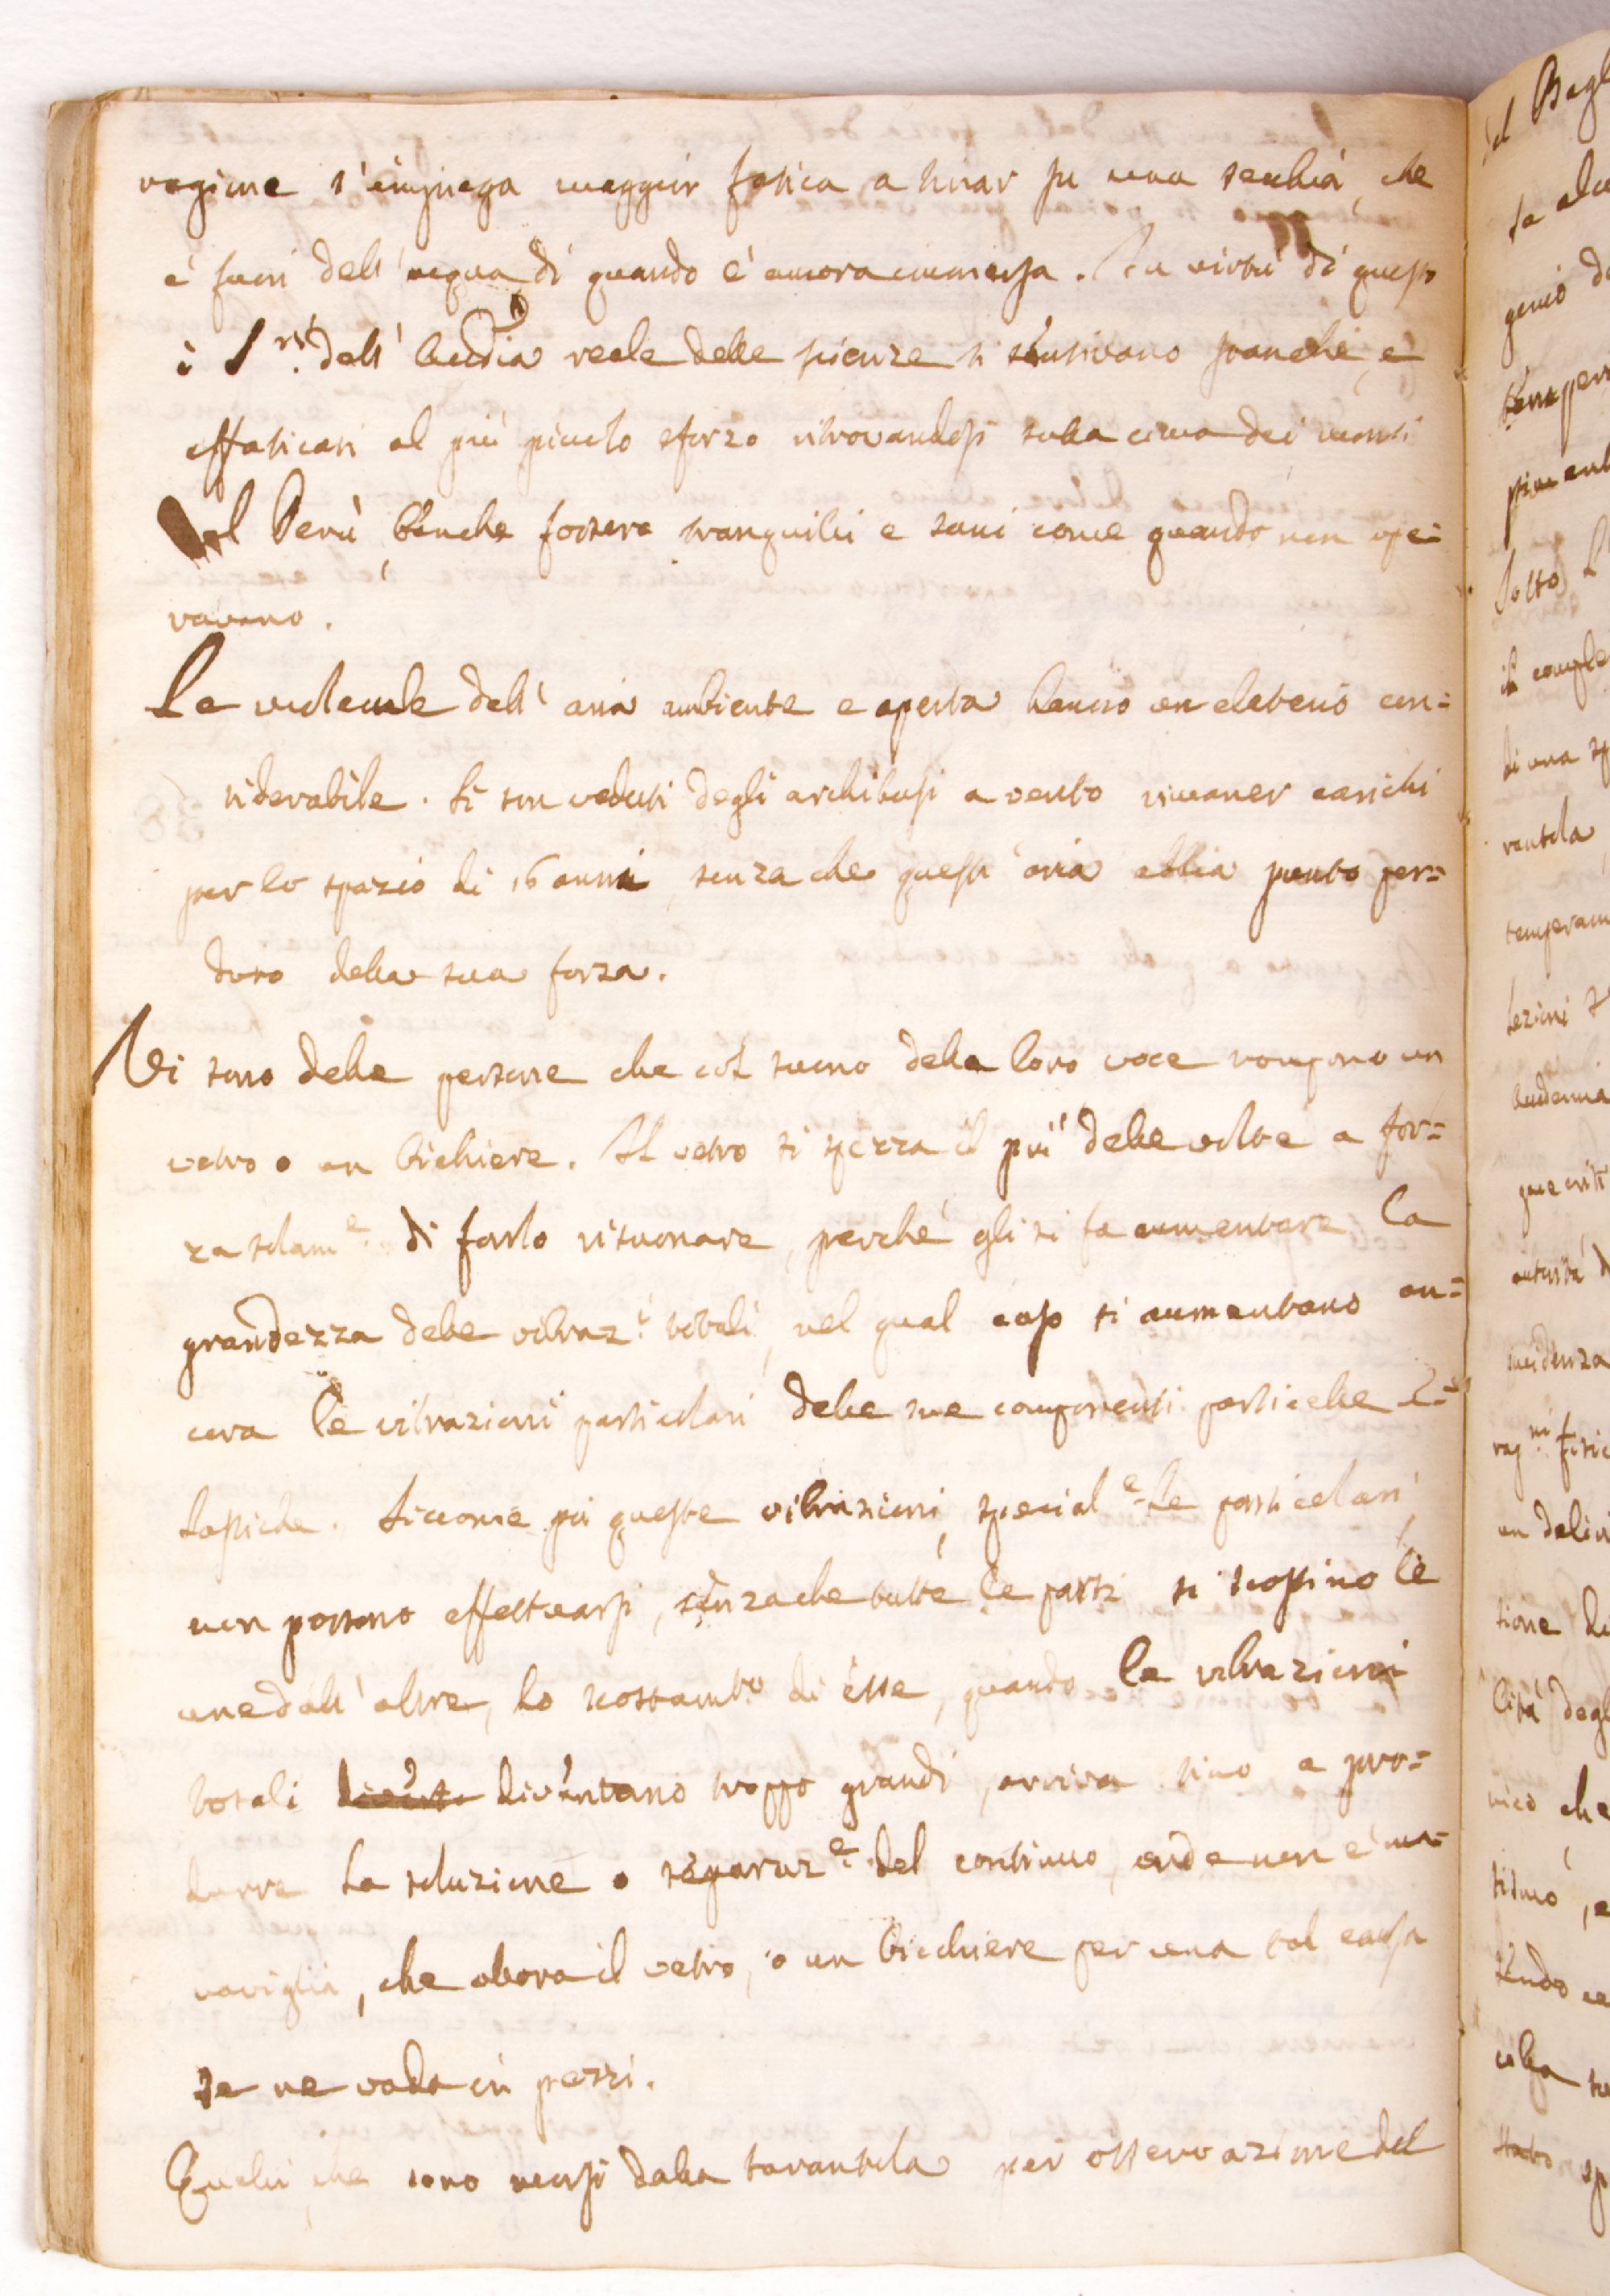 ragione s'impiega maggior fatica a tirar su una secchia, che
è fuori dell'acqua, di quando è ancora immersa. In virtù di questo
i S.ri dell'Accad.ia reale delle scienze si sentivano stanchi, e
affaticati al più piccolo sforzo ritrovandosi sulla cima dei monti
del Perù, benche fossero tranquilli e sani come quando non ope-
ravano.
Le molecule dell'aria ambiente e aperta hanno un elaterio con=
siderabile. Si son veduti degli archibusi a vento rimaner carichi
per lo spazio di 16 anni, senza che quest'aria abbia punto per=
duto della sua forza.
Vi sono delle persone che col suono della loro voce rompono un
vetro o un bichiere. Il vetro si spezza il più delle volte a for=
za solam.e di farlo risuonare, perché gli si fa aumentare la
grandezza delle vibraz.i totali, nel qual caso si aumentano an=
cora le vibrazioni particolari delle sue componenti particelle e=
lastiche. Siccome poi queste vibrazioni, special.e le particolari,
non possono effettuarsi, senza che tutte le parti si scostino le
une dall'altre, lo scostam.to di esse, quando le vibrazioni
totali divent diventano troppo grandi, arriva sino a pro=
durre la soluzione o separaz.e del continuo, onde non è ma=
raviglia, che allora il vetro, o un bicchiere per una tal causa
se ne vada in pezzi.
Quelli, che sono morsi dalla tarantola per osservazione del
del Bagl
ta alc
genio
temper
Sotto
il comple
di una
rantola
temperam
lezioni
Accademia
autorità d
incidenza
un deliri
zione di
lità degl
che